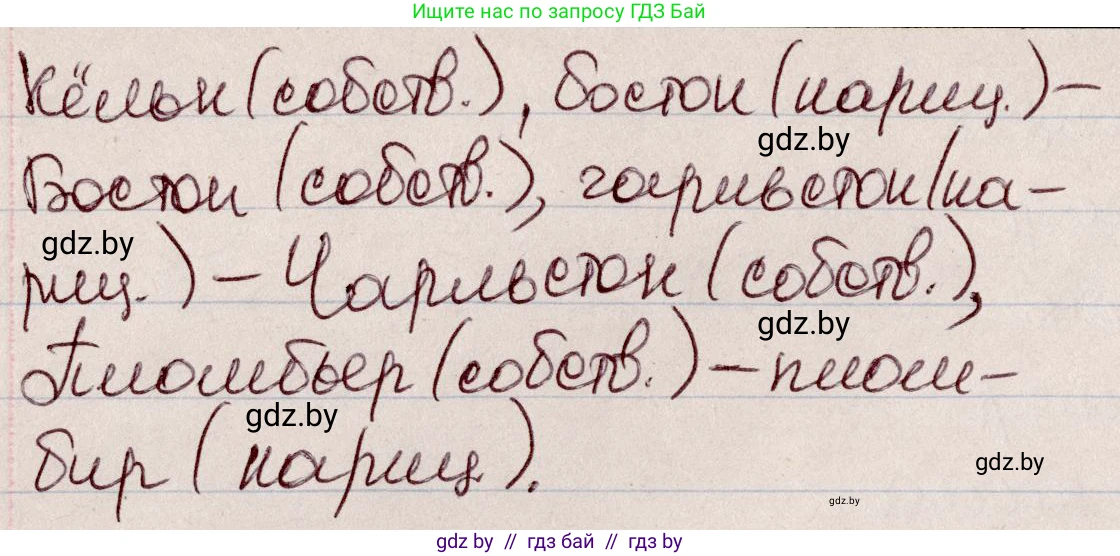 Ищите нас по запросу ГДЗ Бай
Кёльн (собств.), бостон (нариц.) –
gdz.by
Бостон (собств.), чарльстон (на-
gdz.by
риц.) – Чарльстон (собств.),
gdz.by
Пломбьер (собств.) – плом-
gdz.by
бир (нариц).
gdz.by
gdz.by
gdz by // гдз бай // гдз by